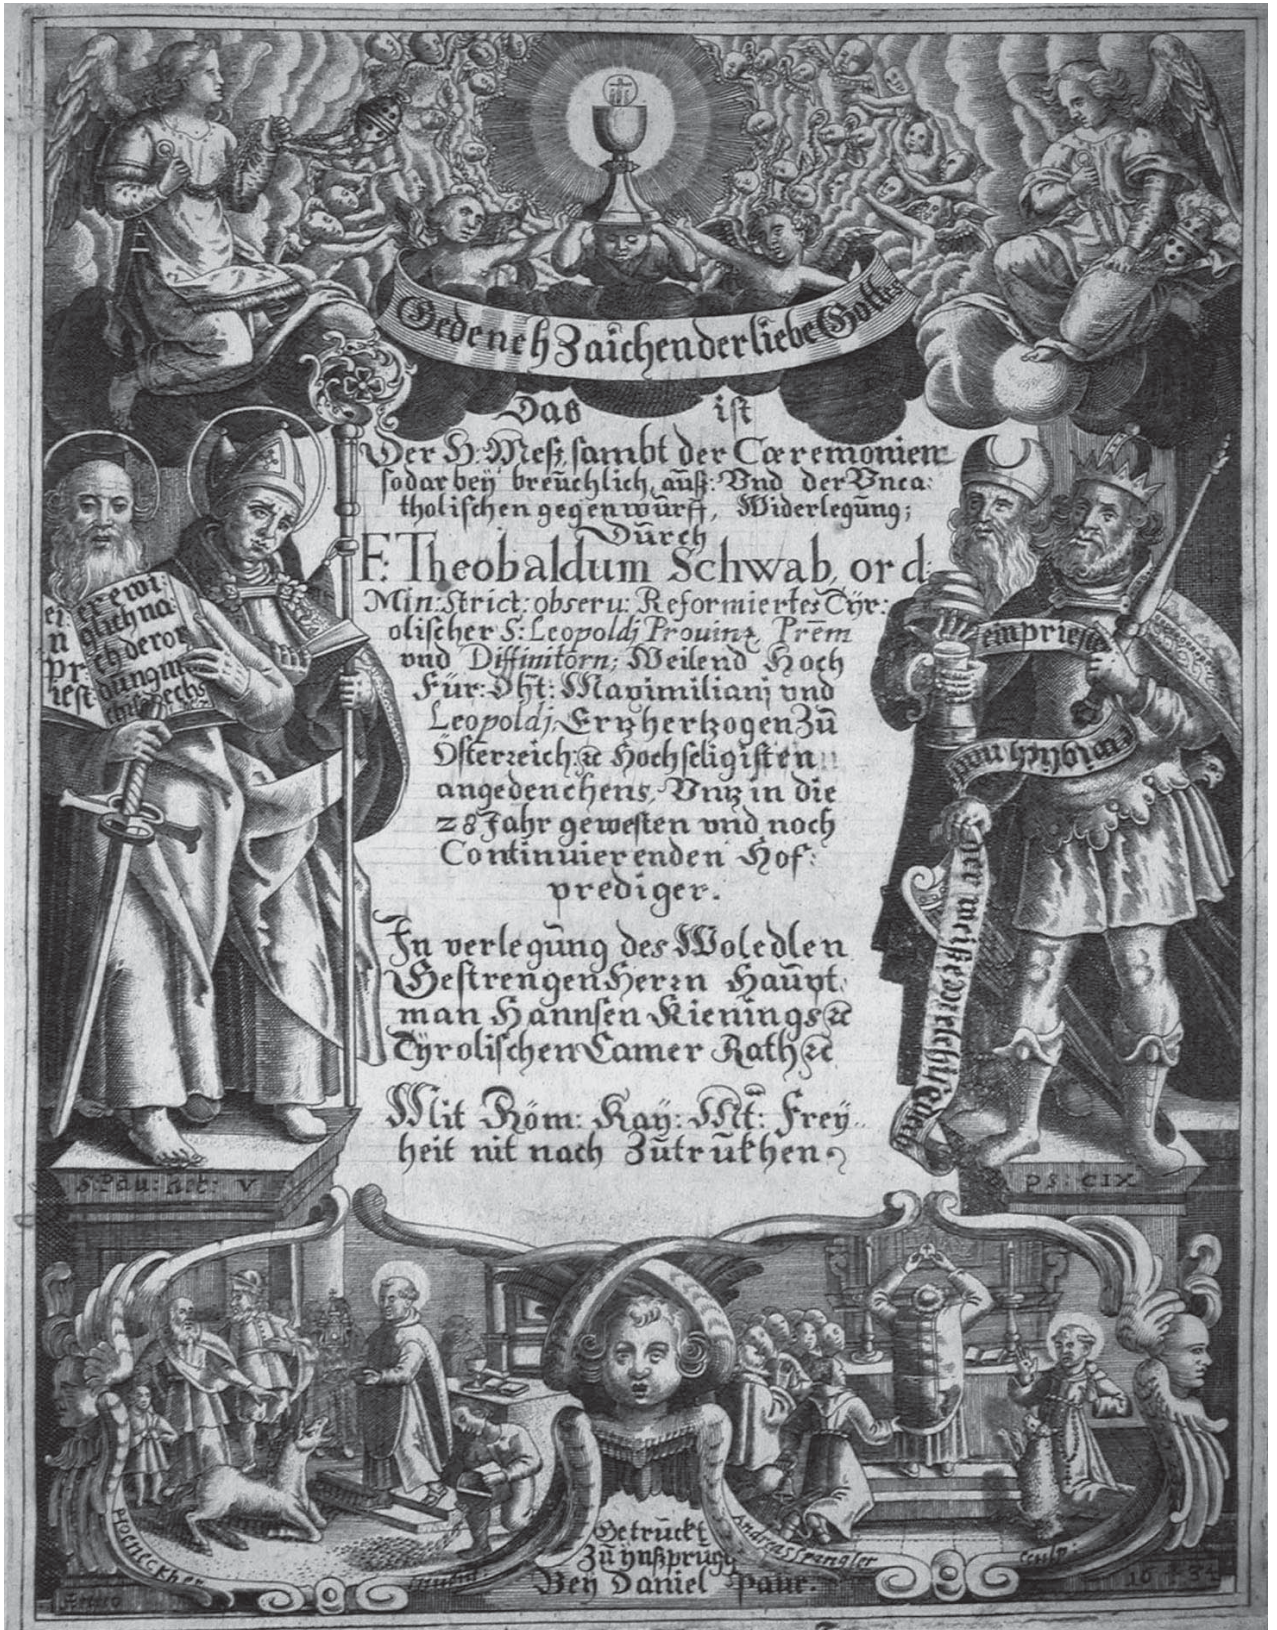 Gedench Zaichen der liebe Gottes
Das ist
Der H: Mess, sambt der Cæremonien
so dar beÿ breüchlich, auß: Vnd der Vnca:
tholischen gegenwürff, Widerlegüng;
Dürch
F. Theobaldum Schwab, ord:
Min: Strict: obseru: Reformiertes Tÿr:
olischer S: Leopoldj Prouinz, Prēm
vnd Diffinitorn; Weilend Hoch
Für: Dht: Maximilianj vnd
Leopoldj, Erzhertzogen Zü
Österreich: ꝛc Hochseligisten
angedenchens, Vnz in die
28 Jahr gewesten vnd noch
Continuierenden Hof:
prediger.
In verlegüng des Woledlen
Gestrengen Herrn Haüpt:
man Hannsen Kienings ꝛc
Tÿrolischen Camer Rath ꝛc
Mit Röm: Kaÿ: Mt: Freÿ..
heit nit nach Zütrükhen.
ei: er ewi:
n glich na:
pr: ch der or
iest dung m
elchisedechs
ein priester
ewiglich nach
der weiße Melchisedech
S: Pau: heb: V
ps: CIX
Getrückt
Zü ÿnßprugg
Beÿ Daniel Paur.
Anno
inuent:
Andreas Spängler
sculp:
1634